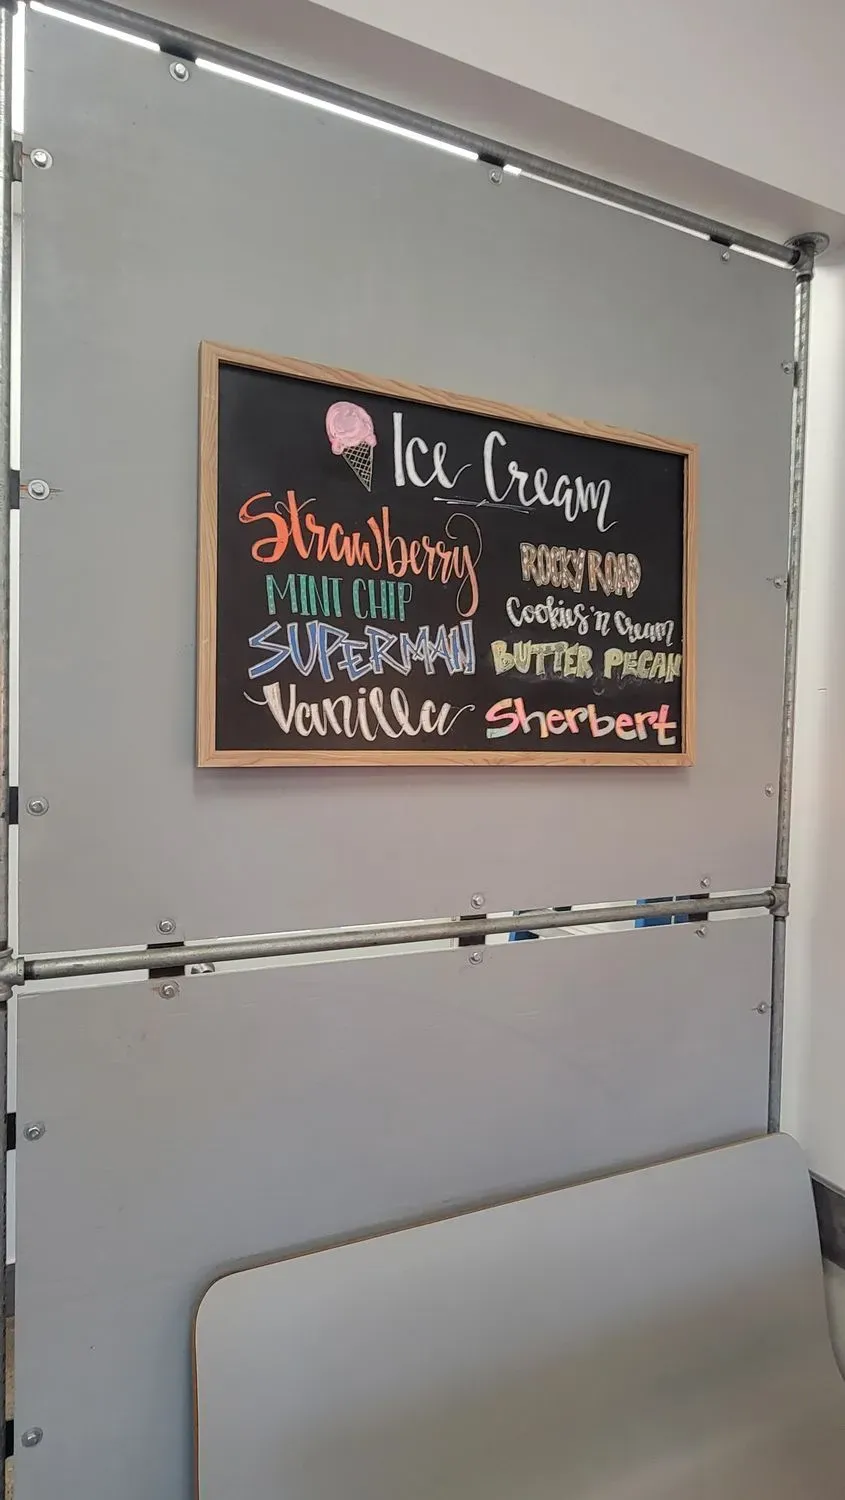 Ice Cream
Strawberry
MINT CHIP
SUPERMAN
Vanilla
ROCKY ROAD
Cookies 'n Cream
BUTTER PECAN
Sherbert